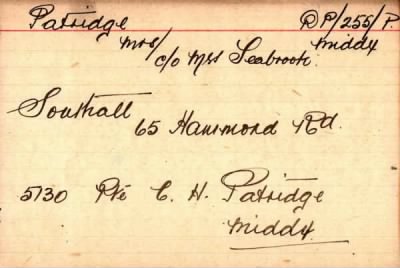 Patridge DP/255/P.
Mrs/ Middx
c/o Mrs Seabrook.
Southall
65 Hammond Rd.
5130 Pte C. H. Patridge
Middx